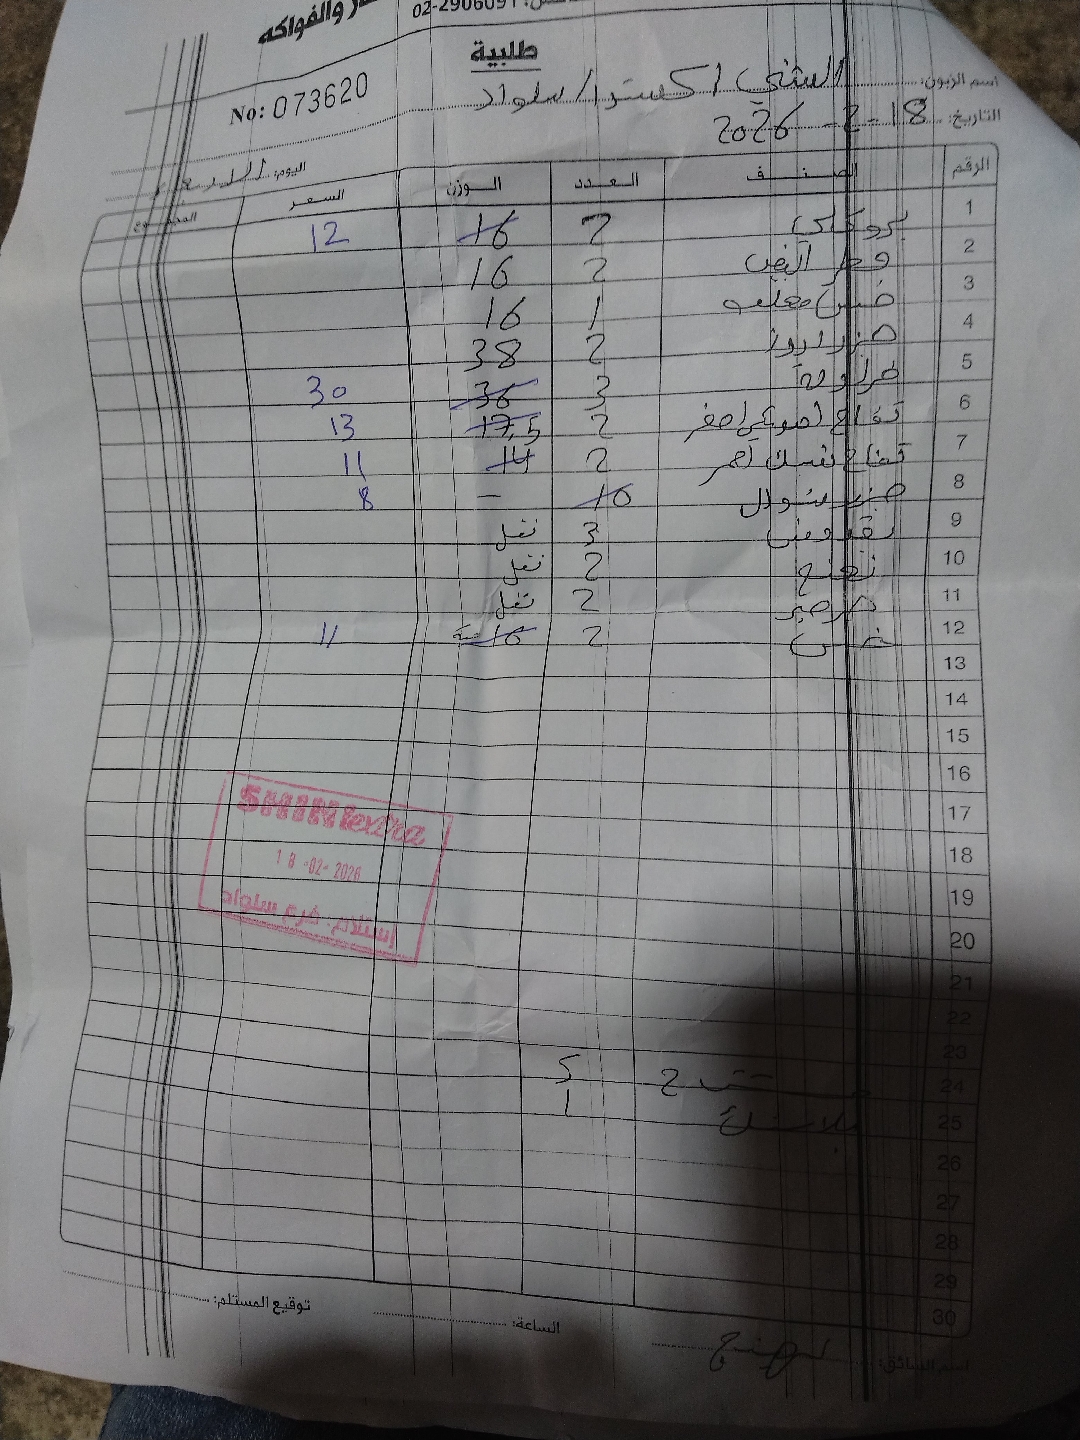 والفواكه
02-2906091
طلبية
No: 073620
اسم الزبون: الشني اكسترا / سلواد
التاريخ: 18-2-2026
اليوم: الاربعاء
الرقم الصنف العدد الوزن السعر المجموع
1 بروكلي 2 16 12
2 فطر ابيض 2 16
3 خس 1 16
4 2 38
5 3 36 30
6 تفاح اصفر 2 17,5 13
7 تفاح احمر 2 14 11
8 جزر شوال 10 – 8
9 بقدونس 3 نقل
10 نعنع 2 نقل
11 جرجير 2 نقل
12 خس 2 16 11
13
14
15
16
17
18
19
20
21
22
23
24 مشتح 2 5
25 بلاستك 1
26
27
28
29
30
SHINI extra
18-02-2026
إستلام - فرع سلواد
توقيع المستلم:
الساعة:
اسم السائق: